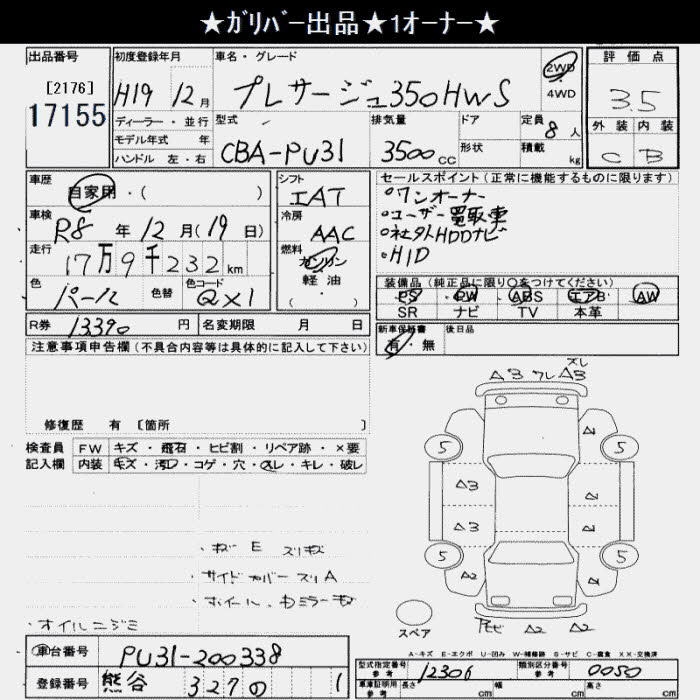 ★ｶﾞﾘﾊﾞｰ出品★1ｵｰﾅｰ★
出品番号 初度登録年月 車名・グレード 評価点
[2176]
17155
H19 12月 プレサージュ350HWS 2WD 4WD 3.5
ディーラー・並行 型式 排気量 ドア 定員 8人 外装 内装
モデル年式 年
ハンドル 左・右 CBA-PU31 3500cc 形状 積載 kg C B
車歴 シフト セールスポイント(正常に機能するものに限ります)
自家用・( ) IAT
車検 R8年12月(19日) 冷房 AAC
走行 17万9千232km 燃料 ガソリン
軽油
色 パール 色替 色コード QX1
°ワンオーナー
°ユーザー買取車
°社外HDDナビ
°HID
装備品(純正品に限り○をつけてください)
PS PW ABS エアB AW
SR ナビ TV 本革
R券 13390円 名変期限 月 日
新車保証書 後日品
有・無
注意事項申告欄(不具合内容等は具体的に記入して下さい)
修復歴 有 〔箇所 〕
検査員 FW キズ・飛石・ヒビ割・リペア跡・×要
記入欄 内装 キズ・汚レ・コゲ・穴・スレ・キレ・破レ
スレ
A3 ワレ A3
A1
5 5
A3 A1
A3 A1
5 5
A2 A2
A2 A2
スペア
・キズ E スリキズ
・サイドカバースリA
・オイルニジミ
A-キズ E-エクボ U-凹み W-補修跡 S-サビ C-腐食 XX-交換済
車台番号 PU31-200338
登録番号 熊谷 327 の 1
型式指定番号 参考 12306 類別区分番号 参考 0050
車庫証明用 参考 長さ cm 幅 cm 高さ cm